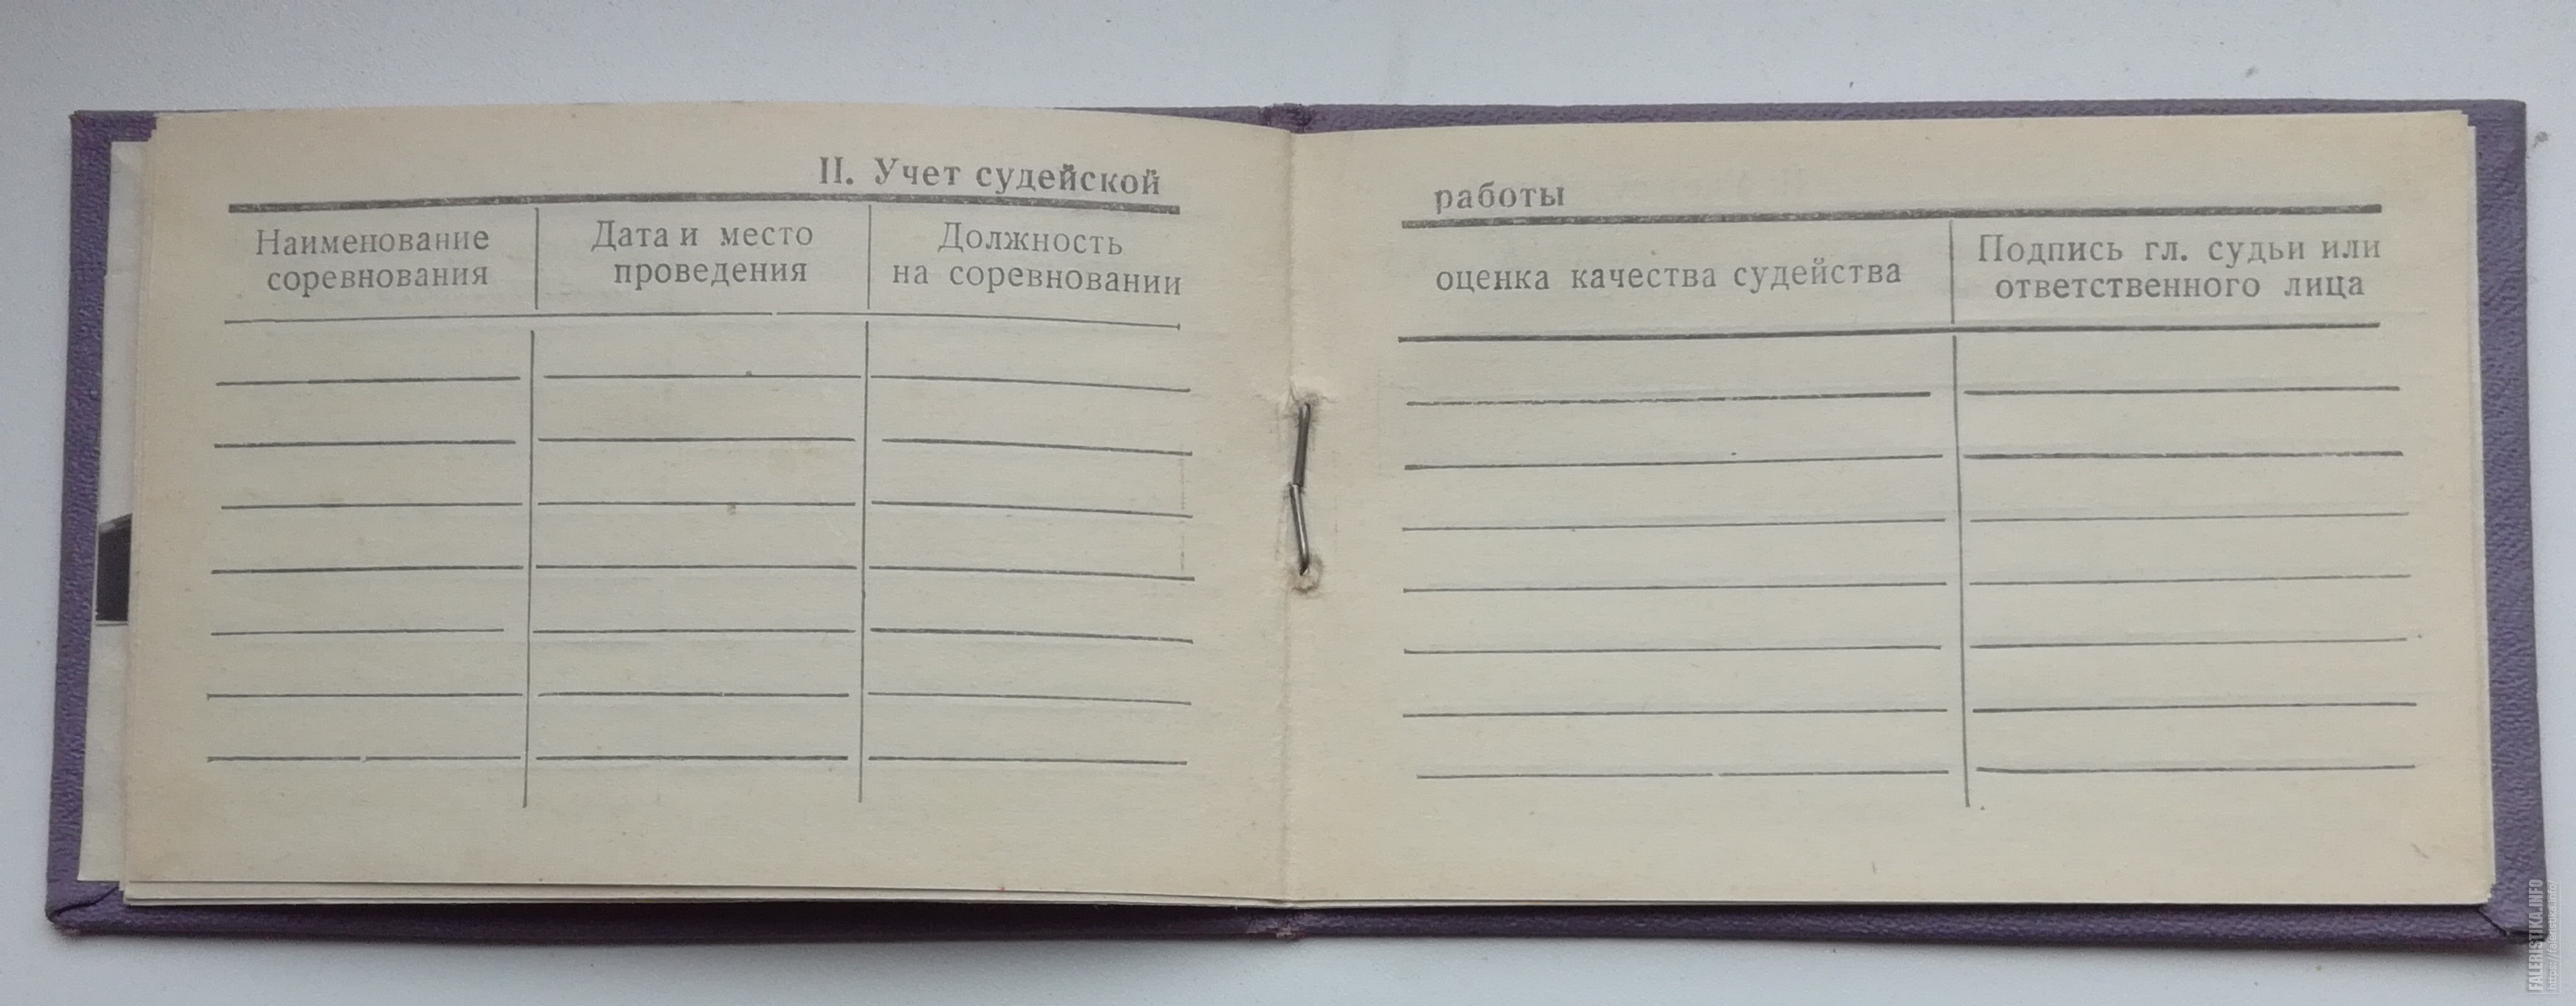 II. Учет судейской
Наименование
соревнования
Дата и место
проведения
Должность
на соревновании
работы
оценка качества судейства
Подпись гл. судьи или
ответственного лица
FALERISTIKA.INFO
https://faleristika.info/